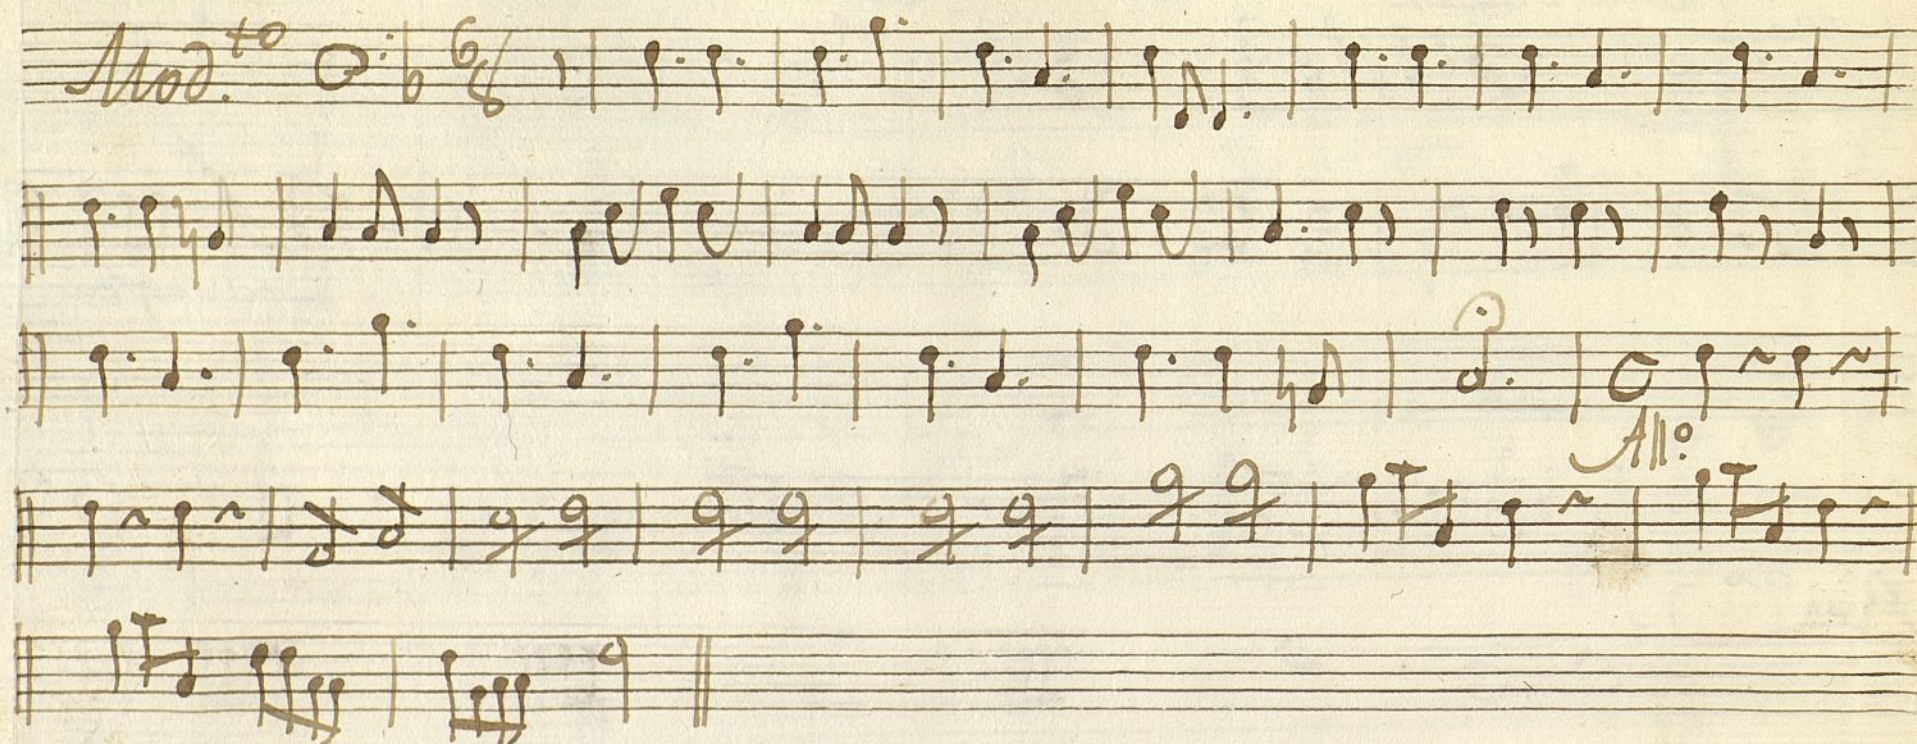 Mod.to 6/8
All°